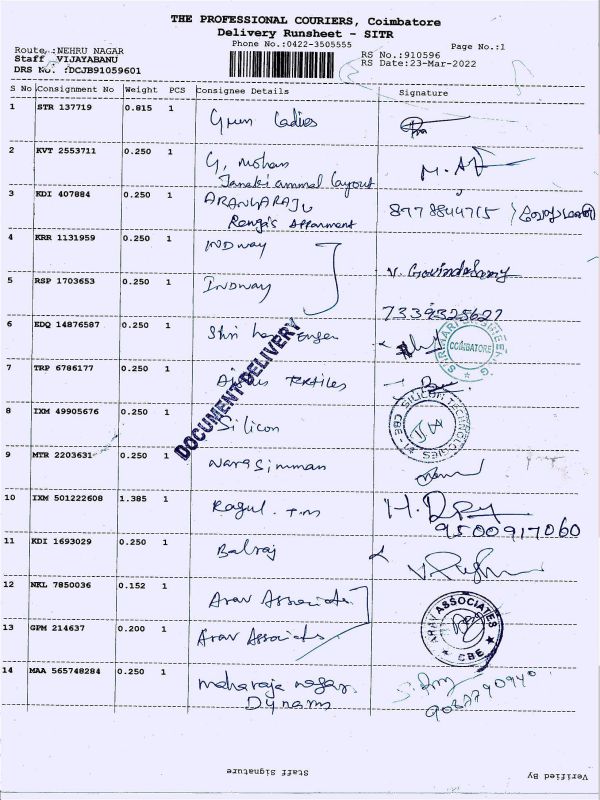 THE PROFESSIONAL COURIERS, Coimbatore
Delivery Runsheet - SITR
Phone No.:0422-3505555
Page No.:1
Route :NEHRU NAGAR
RS No.:910596
Staff VIJAYABANU
RS Date:23-Mar-2022
DRS No. :DCJB91059601
S No Consignment No Weight PCS Consignee Details Signature
1 STR 137719 0.815 1 Green Ladies
2 KVT 2553711 0.250 1 G, mohan
Janaki ammal layout
3 KDI 407884 0.250 1 ARANGARAJU 8778844715
Renga's Apparment
4 KRR 1131959 0.250 1 INDway
V. Govindasamy
5 RSP 1703653 0.250 1 INDway
7339325627
6 EDQ 14876587 0.250 1 Shri
COIMBATORE
DOCUMENT DELIVERY
7 TRP 6786177 0.250 1 Textiles
8 IXM 49905676 0.250 1 Silicon
SILICON TECHNOLOGIES
CBE - 14
9 MTR 2203631 0.250 1 Narasimman
10 IXM 501222608 1.385 1 Ragul . T.M
9500917060
11 KDI 1693029 0.250 1 Balraj
12 NKL 7850036 0.152 1 Arav Associates
13 GPM 214637 0.200 1 Arav Associates
ARAV ASSOCIATES
CBE
14 MAA 565748284 0.250 1 maharaja nagar
Dynams
Staff Signature Verified By